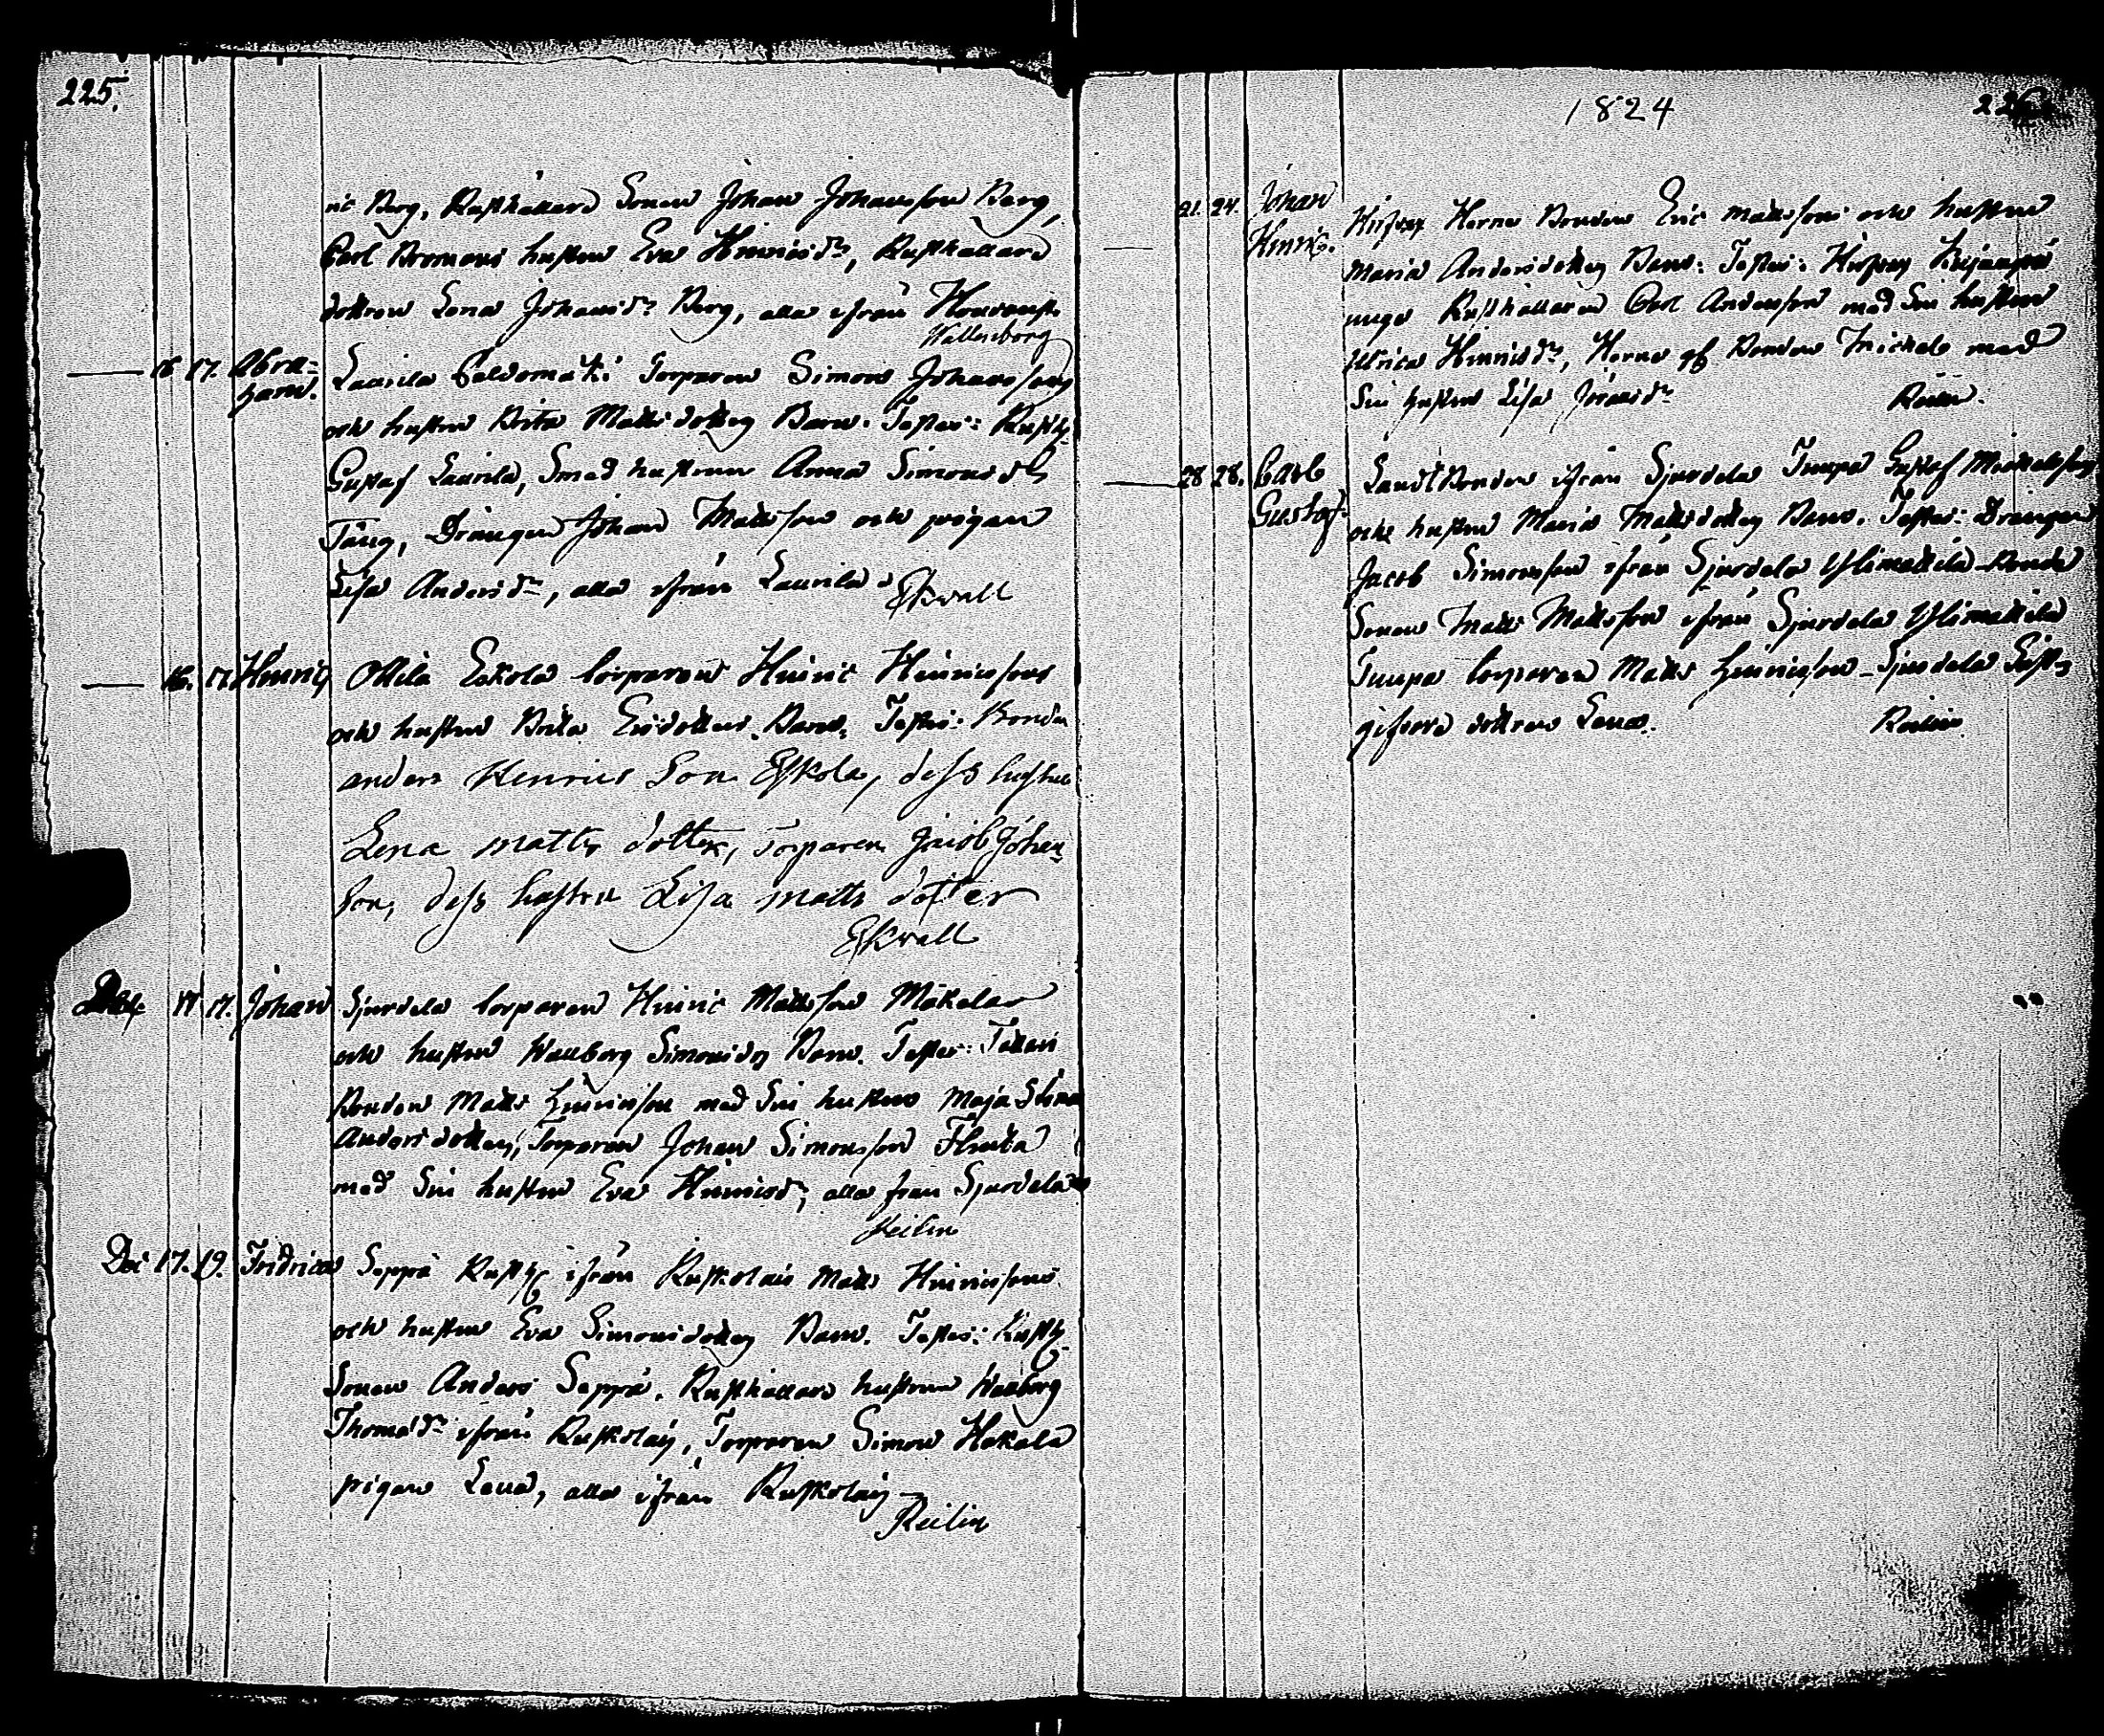 225.
ric Berg, Rusthållare Sonen Johan Johansson Berg,
Carl Bromans hustru Eva Hinricsdr, Rusthållare
dottren Lena Johansdr Berg, alla ifrån
Wallenborg
16 17. Abra-
ham.
Laurila Torparen Simon Johanssons
och hustrun Brita Mattsdotters Barn. Testes: Rusth.
Gustaf Laurila, Smed hustrun Anna Simonsdr
Täng, Drängen Johan Mattsson och pigan
Lisa Andersdr, alla ifrån Laurila.
Ekwall
16. 17. Hinric
Ottila Eskola torparen Hinric Hinricssons
och hustrun Brita Ersdotters Barn. Testes: Bonden
anders Henrics Son Eskola, dess hustru
Lena matts dotter, Torparen Jacob Johan-
son, dess hustru Lisa matts dotter
Ekwall
17 17. Johan
Sjurdela torparen Hinric Mattsson Mäkelas
och hustrun Wallborg Simonsdrs Barn. Testes:
Bonden Matts Hinricsson med Sin hustru Maja Stina
Andersdotter, Torparen Johan Simonsson
med Sin hustru Eva Hinricsdr, alla från Sjurdela
Reilin
Dec 17. 19. Fridrica
Seppä Rusth. ifrån Ruskolais Matts Hinricssons
och hustrun Eva Simonsdotters Barn. Testes: Rusth.
Sonen Anders Seppä, Rusthållare hustrun Wallborg
Thomasdr ifrån Ruskolais, Torparen Simon Hakala
pigan Lena, alla ifrån Ruskolais
Reilin
1824
226.
21. 24. Johan
Hinric.
Herne Bonden Eric Mattssons och hustrun
Maria Andersdotters Barn. Testes:
unge Rusthållaren Carl Andersson med Sin hustru
Ulrica Hinricsdr, Herne Bonden Michel med
Sin hustru Lisa Göransdr
Reilin.
28 28. Carl
Gustaf.
Bonden ifrån Sjurdela Tuupa Gustaf Michelssons
och hustrun Maria Mattsdotters Barn. Testes: Drängen
Jacob Simonsson ifrån Sjurdela Ylimattila Bonde
Sonen Matts Mattsson ifrån Sjurdela Ylimattila
Tuupa torparen Matts Hinricsson Sjurdela Gäst-
gifvare dottren Lena.
Reilin